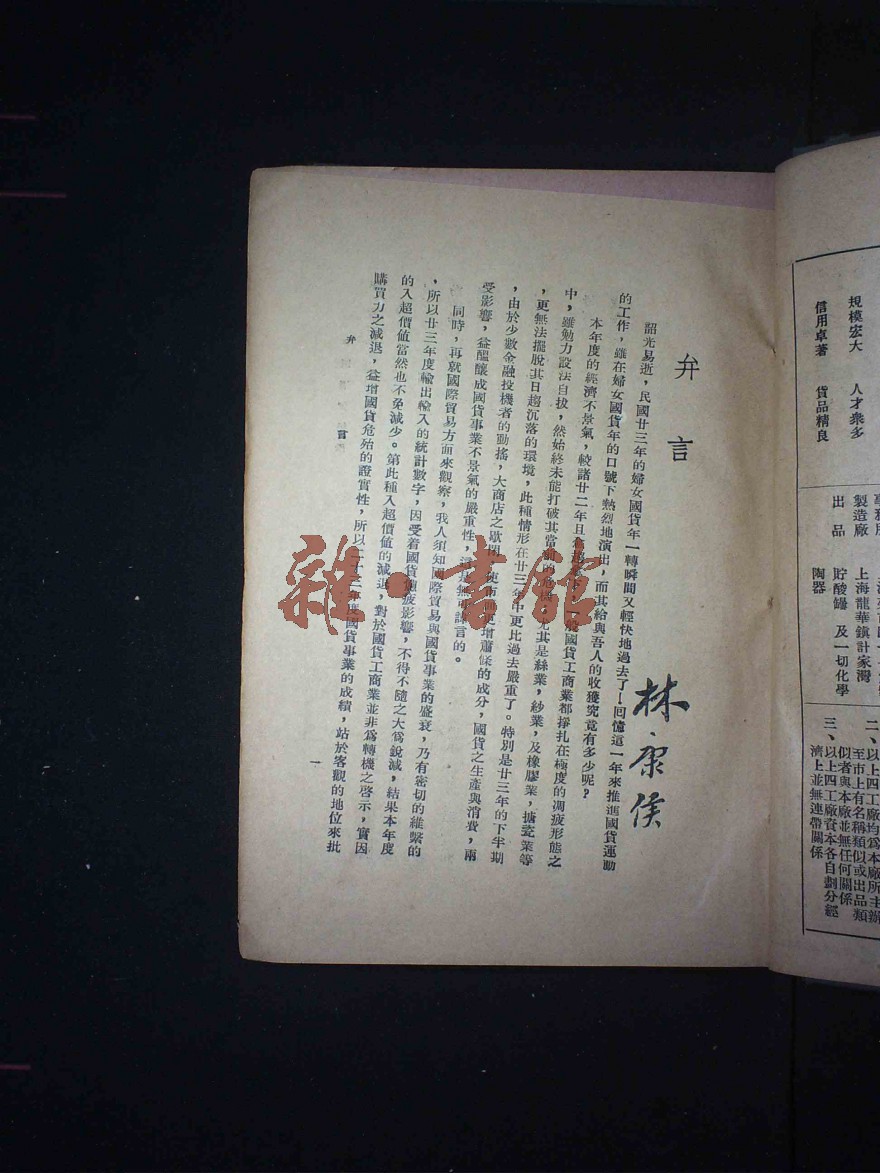 弁言
林康侯
韶光易逝，民國廿三年的婦女國貨年一轉瞬間又輕快地過去了！回憶這一年來推進國貨運動
的工作，雖在婦女國貨年的口號下熱烈地演出，而其給與吾人的收獲究竟有多少呢？
本年度的經濟不景氣，較諸廿二年且
國貨工商業都掙扎在極度的凋疲形態之
中，雖勉力設法自拔，然始終未能打破其當前的危機，尤其是絲業，紗業，及橡膠業，搪瓷業等
，更無法擺脫其日趨沉落的環境，此種情形在廿三年中更比過去嚴重了。特別是廿三年的下半期
，由於少數金融投機者的動搖，大商店之歇閉，
更增蕭條的成分，國貨之生產與消費，兩
受影響，益醞釀成國貨事業不景氣的嚴重性，這是無可諱言的。
同時，再就國際貿易方面來觀察，我人須知國際貿易與國貨事業的盛衰，乃有密切的維繫的
，所以廿三年度輸出輸入的統計數字，因受着國貨疲影響，不得不隨之大爲銳減，結果本年度
的入超價值當然也不免減少。第此種入超價值的減退，對於國貨工商業並非爲轉機之啓示，實因
購買力之減退，益增國貨危殆的證實性，所以二十三年度國貨事業的成績，站於客觀的地位來批
弁言
一
規模宏大 人才衆多
信用卓著 貨品精良
製造廠 上海龍華鎮計家灣
出品 貯酸罎 及一切化學
陶器
二、以上四工廠均爲本廠所主辦
至市上有名稱類似或出品類
似者與本廠並無任何關係
三、以上四工廠資本各自劃分經
濟上並無連帶關係
雜·書館